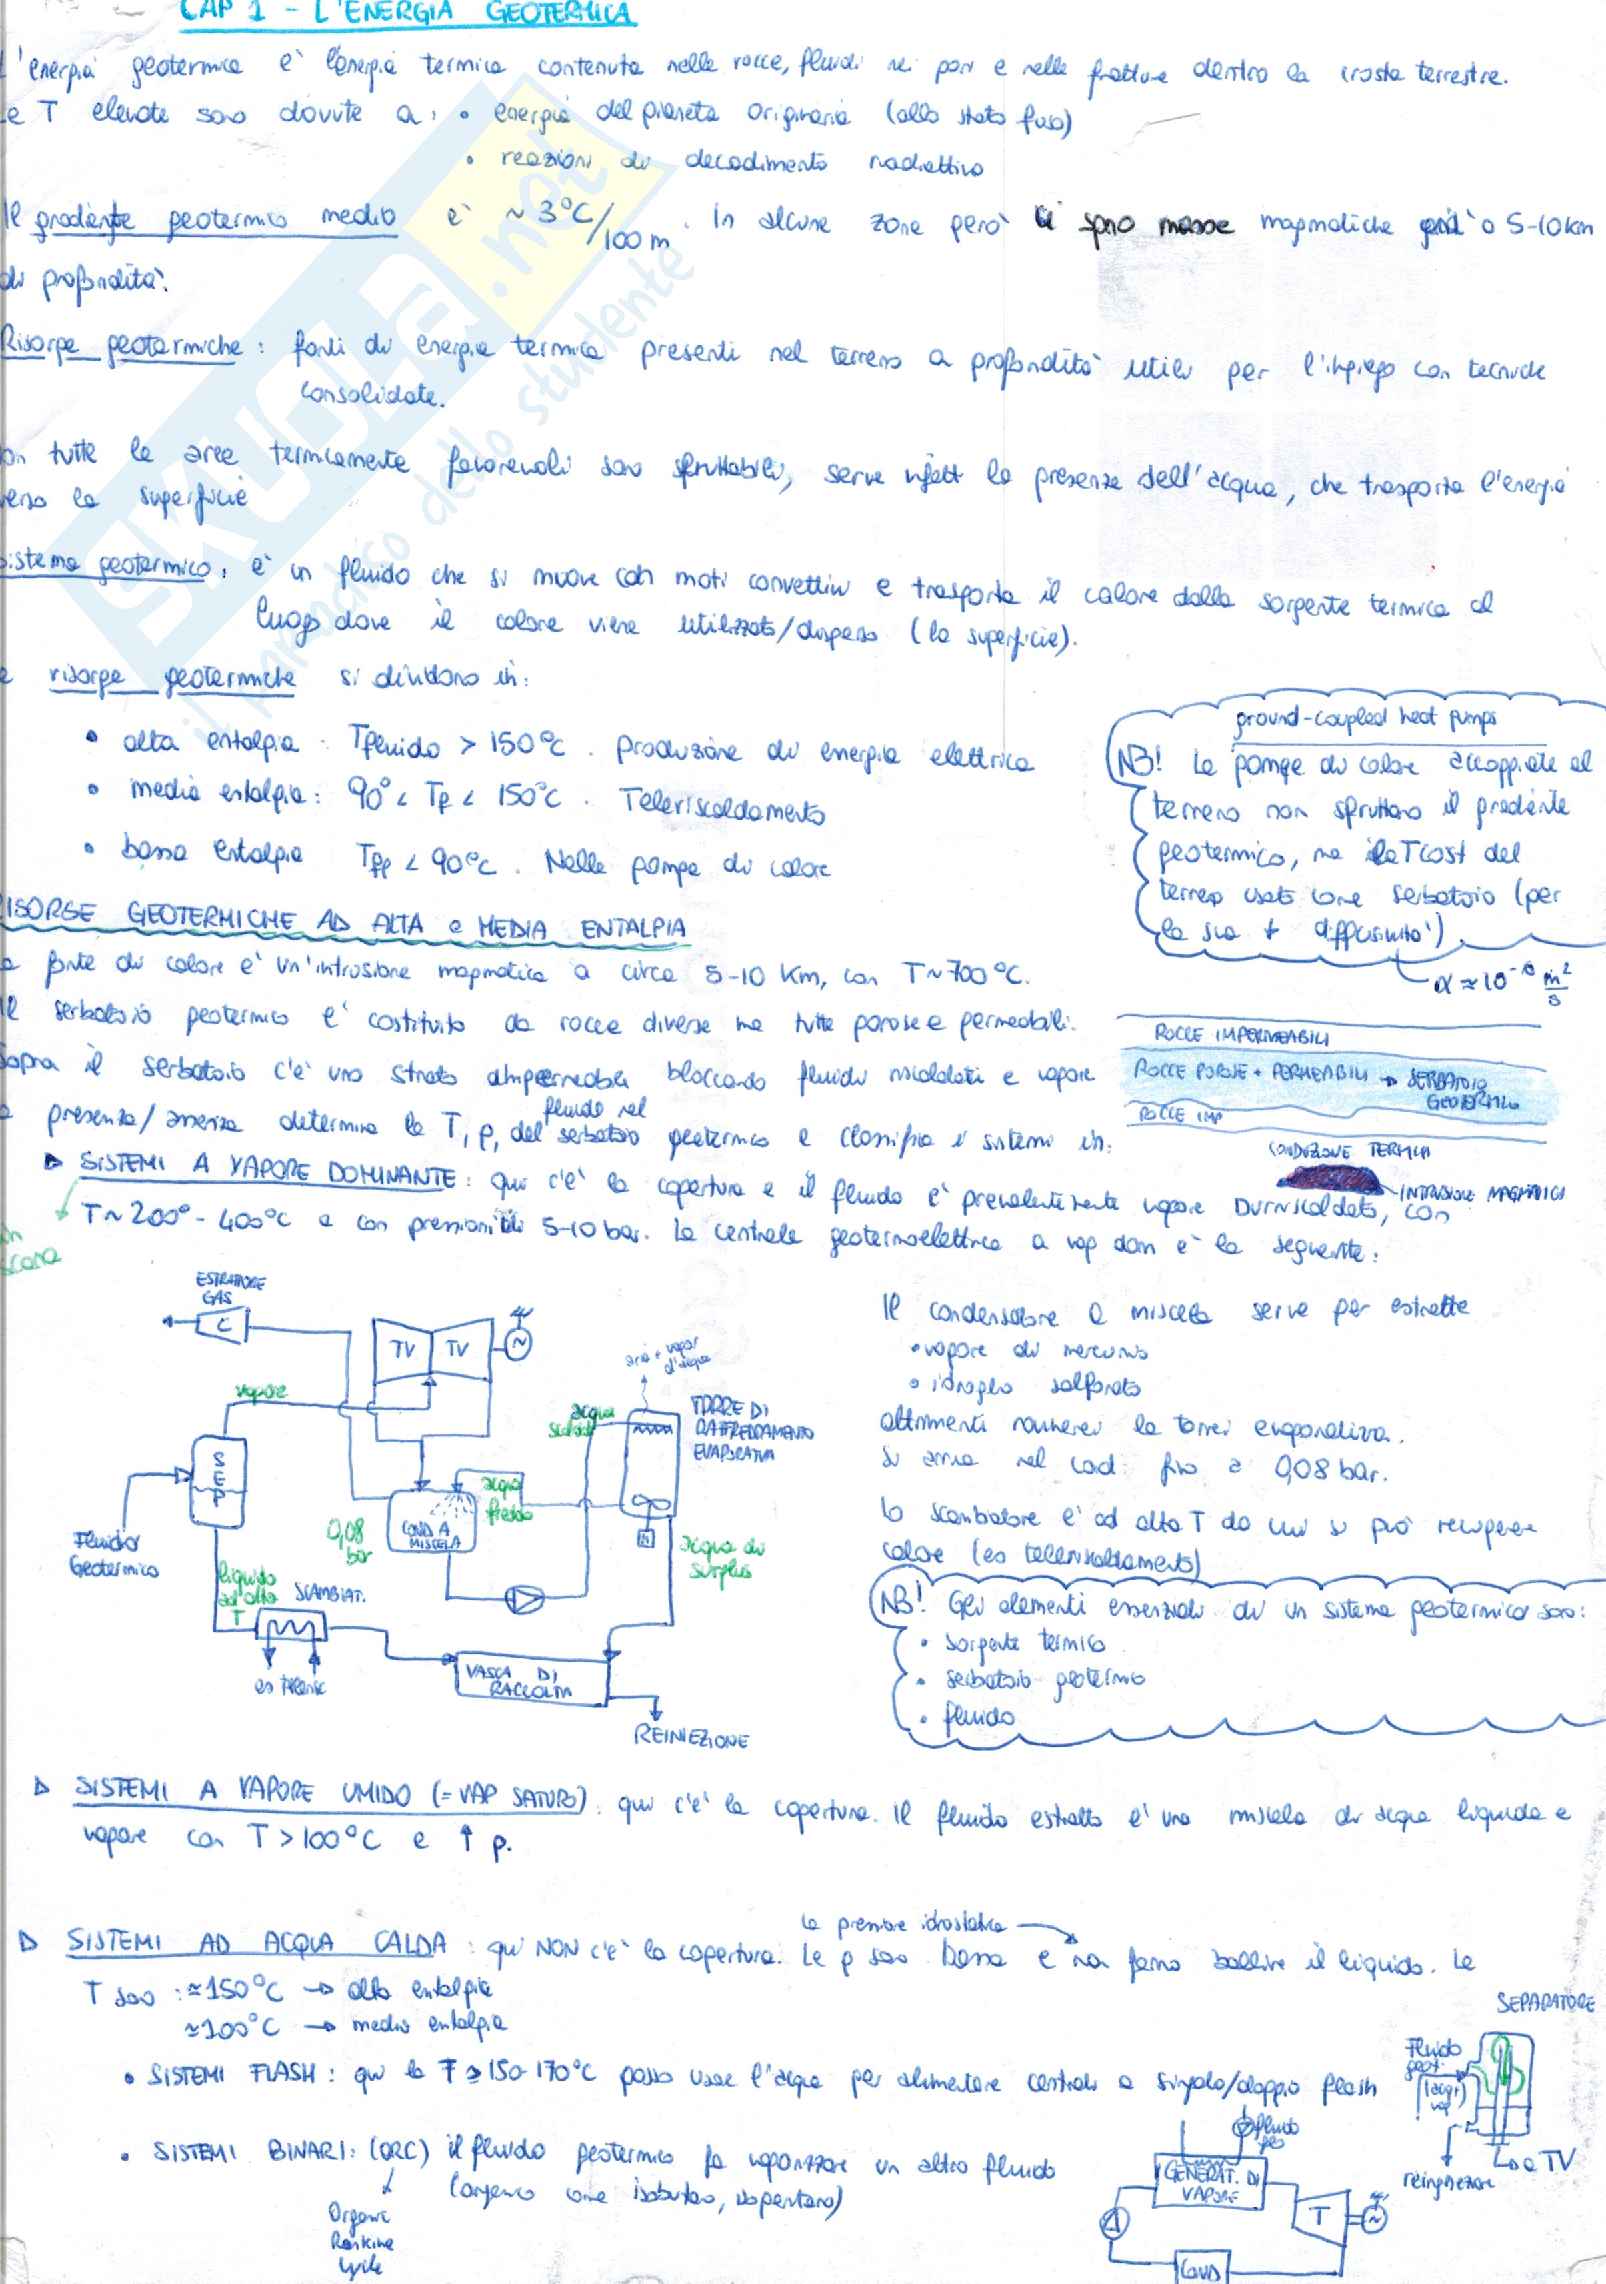 CAP 1 - L'ENERGIA GEOTERMICA
L'energia geotermica è l'energia termica contenuta nelle rocce, fluidi nei pori e nelle fratture dentro la crosta terrestre.
Le T elevate sono dovute a: • energia del pianeta originaria (allo stato fuso)
• reazioni di decadimento radiattivo
Il gradiente geotermico medio è ~ 3°C/100 m. In alcune zone però ci sono masse magmatiche già a 5-10 km
di profondità.
Risorse geotermiche: fonti di energia termica presenti nel terreno a profondità utili per l'impiego con tecniche
consolidate.
Non tutte le aree termicamente favorevoli sono sfruttabili, serve infatti la presenza dell'acqua, che trasporta l'energia
verso la superficie
Sistema geotermico: è un fluido che si muove con moti convettivi e trasporta il calore dalla sorgente termica al
luogo dove il calore viene utilizzato/disperso (la superficie).
Le risorse geotermiche si dividono in:
• alta entalpia: Tfluido > 150°C. Produzione di energia elettrica
• media entalpia: 90° < Tf < 150°C. Teleriscaldamento
• bassa entalpia Tf < 90°C. Nelle pompe di calore
ground-coupled heat pumps
NB! Le pompe di calore accoppiate al
terreno non sfruttano il gradiente
geotermico, ma la T cost del
terreno usato come serbatoio (per
la sua ↓ diffusività).
α ≈ 10⁻⁶ m²/s
RISORSE GEOTERMICHE AD ALTA e MEDIA ENTALPIA
La fonte di calore è un'intrusione magmatica a circa 5-10 Km, con T~700°C.
Il serbatoio geotermico è costituito da rocce diverse ma tutte porose e permeabili.
Sopra il serbatoio c'è uno strato impermeabile bloccando fluidi riscaldati e vapore
La presenza/assenza determina la T, p, del fluido nel serbatoio geotermico e classifica i sistemi in:
ROCCE IMPERMEABILI
ROCCE POROSE + PERMEABILI → SERBATOIO
GEOTERMICO
ROCCE IMP
CONDUZIONE TERMICA
INTRUSIONE MAGMATICA
▷ SISTEMI A VAPORE DOMINANTE: qui c'è la copertura e il fluido è prevalentemente vapore surriscaldato, con
T~200°-400°C e con pressioni di 5-10 bar. La centrale geotermoelettrica a vap dom è la seguente:
ESTRATTORE
GAS
C
TV TV
vapore
aria + vapor
d'acqua
acqua
calda
TORRE DI
RAFFREDDAMENTO
EVAPORATIVA
SEP
Fluido
Geotermico
acqua
fredda
0,08
bar
COND A
MISCELA
M
acqua di
surplus
liquido
ad alta
T
SCAMBIAT.
VASCA DI
RACCOLTA
REINIEZIONE
Il condensatore a miscela serve per estrarre
• vapore di mercurio
• idrogeno solforato
altrimenti rovinerei la torre evaporativa.
Si arriva nel cond. fino a 0,08 bar.
Lo scambiatore è ad alta T da cui si può recuperare
calore (es teleriscaldamento)
NB! Gli elementi essenziali di un sistema geotermico sono:
• sorgente termica
• serbatoio geotermico
• fluido
▷ SISTEMI A VAPORE UMIDO (= VAP SATURO): qui c'è la copertura. Il fluido estratto è una miscela di acqua liquida e
vapore con T > 100°C e ↑ p.
la pressione idrostatica
▷ SISTEMI AD ACQUA CALDA: qui NON c'è la copertura. Le p sono basse e non fanno bollire il liquido. Le
T sono: ≈150°C → alta entalpia
≈100°C → media entalpia
• SISTEMI FLASH: qui la T ≥ 150-170°C posso usare l'acqua per alimentare centrali a singolo/doppio flash
• SISTEMI BINARI: (ORC) il fluido geotermico fa vaporizzare un altro fluido
(organico come isobutano, isopentano)
Organic
Rankine
Cycle
SEPARATORE
Fluido
geot.
(acqua
vap)
reiniezione
a TV
fluido
geo
GENERAT. DI
VAPORE
T
COND
SKUOLA.net
il paradiso dello studente